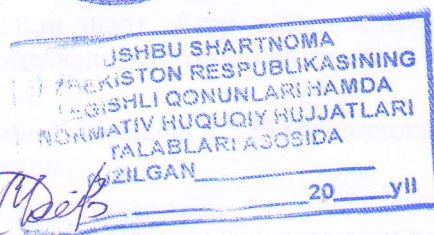 USHBU SHARTNOMA
O'ZBEKISTON RESPUBLIKASINING
TEGISHLI QONUNLARI HAMDA
NORMATIV HUQUQIY HUJJATLARI
TALABLARI ASOSIDA
TUZILGAN____________
____________20____yil